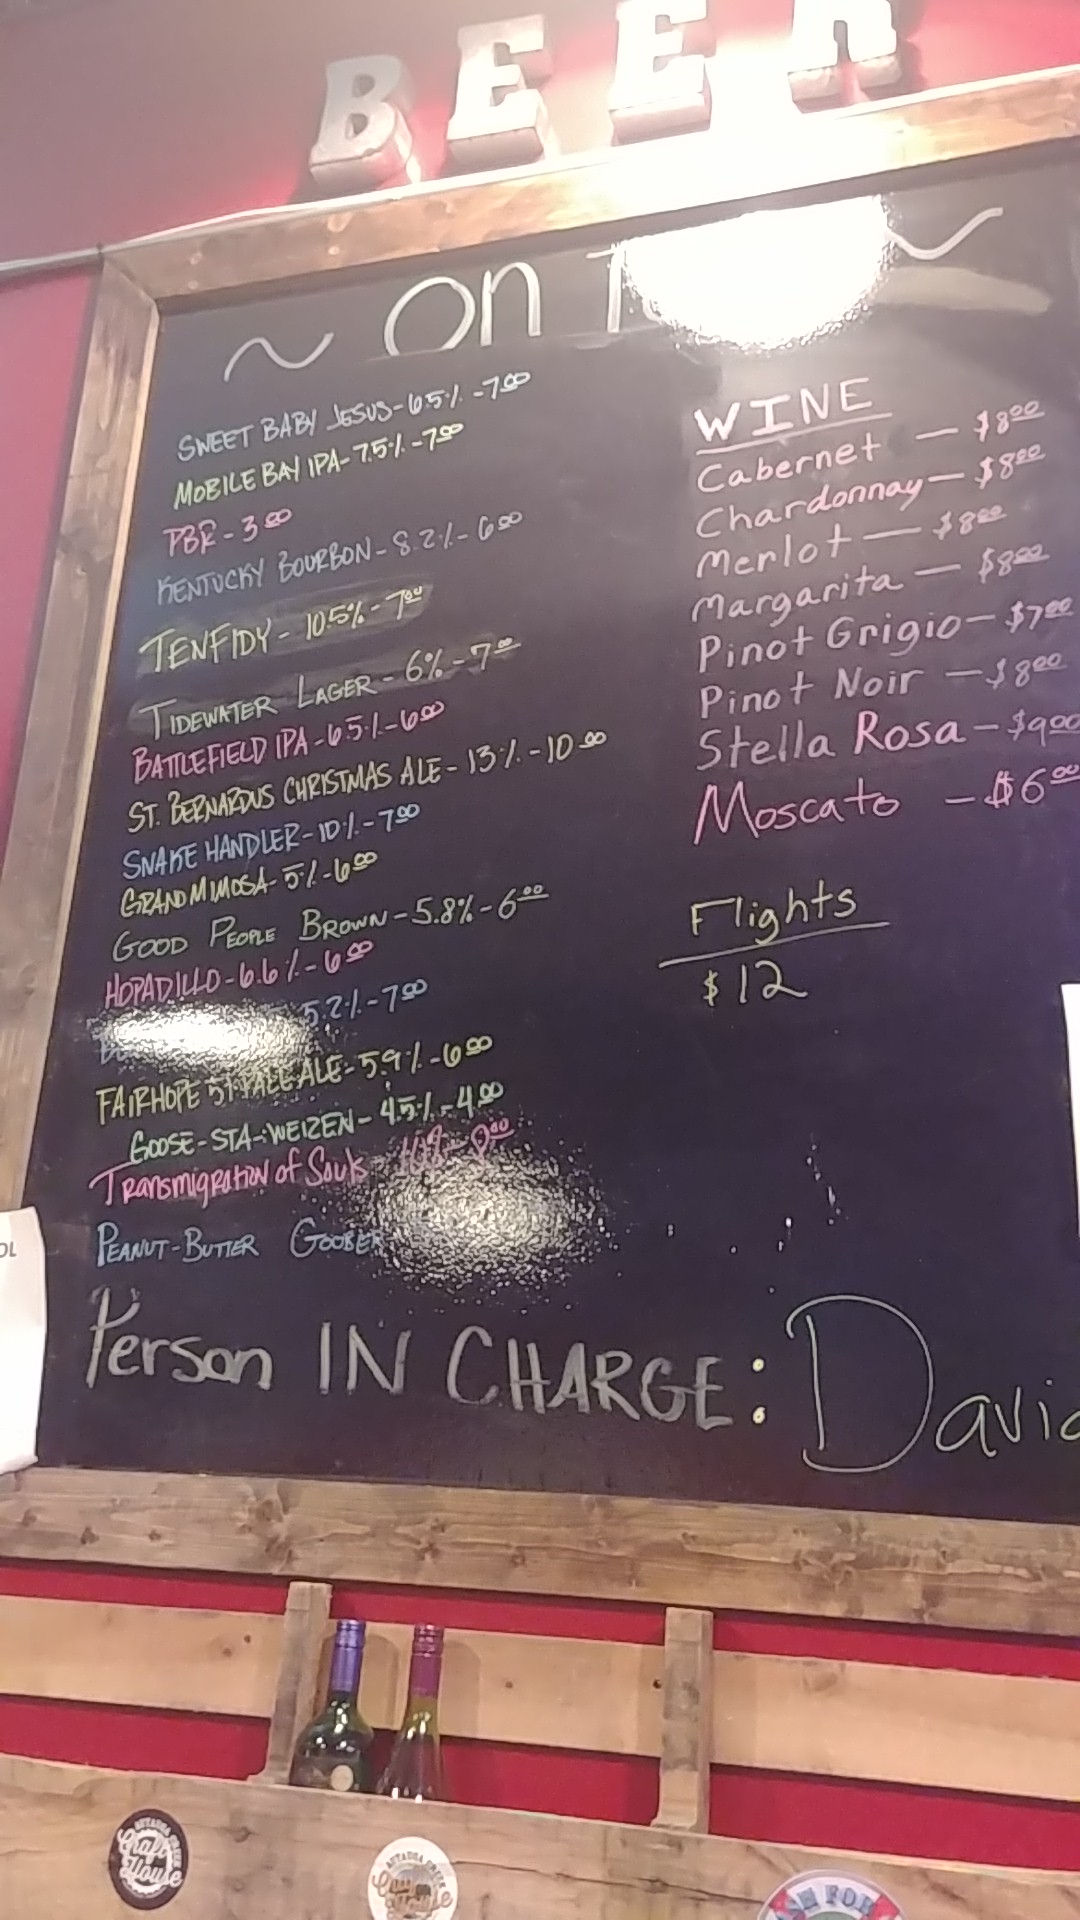 BEER
~ On ~
SWEET BABY JESUS-6.5%-7.00
MOBILE BAY IPA-7.5%-7.00
PBR-3.00
KENTUCKY BOURBON-8.2%-6.00
TENFIDY-10.5%-7.00
TIDEWATER LAGER-6%-7.00
BATTLEFIELD IPA-6.5%-6.00
ST. BERNARDUS CHRISTMAS ALE-13%-10.00
SNAKE HANDLER-10%-7.00
GRAND MIMOSA-5%-6.00
GOOD PEOPLE BROWN-5.8%-6.00
HOPADILLO-6.6%-6.00
5.2%-7.00
FAIRHOPE 51 PALE ALE-5.9%-6.00
GOOSE-STA-WEIZEN-4.5%-4.00
TRANSMIGRATION of Souls
PEANUT-BUTTER GOOBER
WINE
Cabernet — $8.00
Chardonnay — $8.00
Merlot — $8.00
Margarita — $8.00
Pinot Grigio — $7.00
Pinot Noir — $8.00
Stella Rosa — $9.00
Moscato — $6.00
Flights
$12
Person IN CHARGE: David
Craft
House